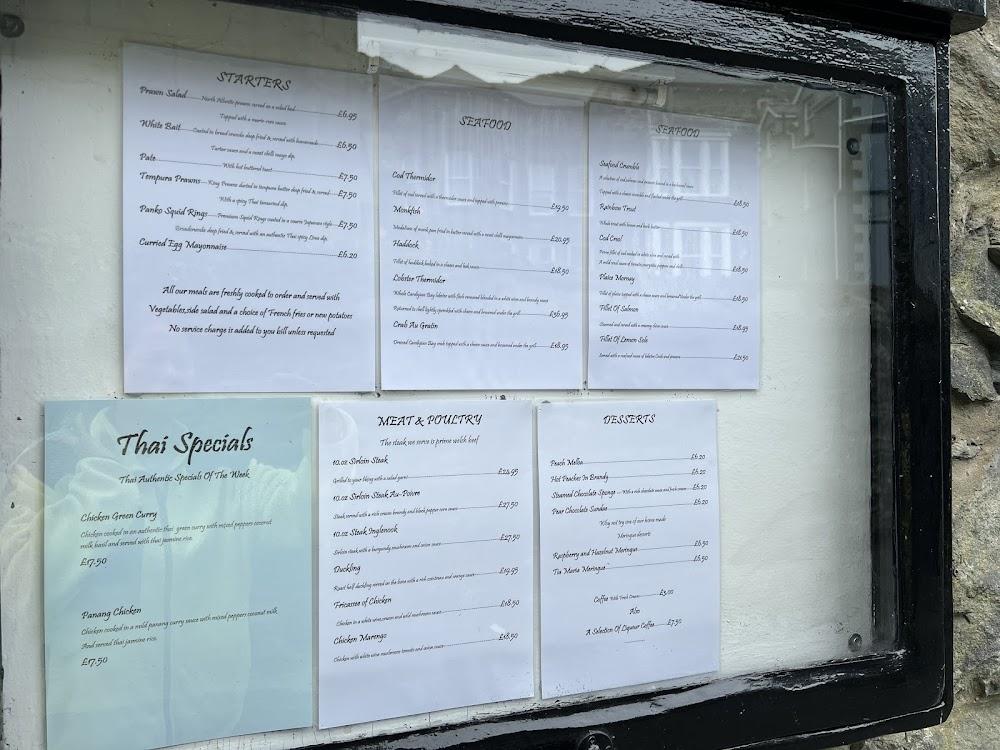 STARTERS
Prawn Salad North Atlantic prawns served on a salad bed
Topped with a marie rose sauce £6.95
White Bait Coated in bread crumbs deep fried & served with homemade
Tartar sauce and a sweet chilli mayo dip. £6.50
Pate With hot buttered toast £7.50
Tempura Prawns King Prawns dusted in tempura batter deep fried & served £7.50
With a spicy Thai flavoured dip.
Panko Squid Rings Premium Squid Rings coated in a coarse Japanese style £7.50
Breadcrumbs deep fried & served with an authentic Thai spicy Lime dip.
Curried Egg Mayonnaise £6.20
All our meals are freshly cooked to order and served with
Vegetables,side salad and a choice of French fries or new potatoes
No service charge is added to you bill unless requested
SEAFOOD
Cod Thermidor
Fillet of cod served with a thermidor sauce and topped with prawns £19.50
Monkfish
Medallions of monk pan fried in butter served with a sweet chilli mayonnaise £20.95
Haddock
Fillet of haddock baked in a cheese and leek sauce £18.50
Lobster Thermidor
Whole Cardigan Bay lobster with flesh removed blended in a white wine and brandy sauce
Returned to shell lightly sprinkled with cheese and browned under the grill £36.95
Crab Au Gratin
Dressed Cardigan Bay crab topped with a cheese sauce and browned under the grill £18.95
SEAFOOD
Seafood Crumble
A selection of cod,salmon and prawns bound in a bechamel sauce
Topped with cheese crumble and finished under the grill £18.50
Rainbow Trout
Whole trout with lemon and herb butter £18.50
Cod Creol
Prime fillet of cod cooked in white wine and served with
A mild creol sauce of tomato,courgette, peppers and chilli £18.50
Plaice Mornay
Fillet of plaice topped with cheese sauce and browned under the grill £18.50
Fillet Of Salmon
Steamed and served with a creamy sauce £18.95
Fillet Of Lemon Sole
Served with a seafood sauce of lobster, Crab and prawns £21.50
Thai Specials
Thai Authentic Specials Of The Week
Chicken Green Curry
Chicken cooked in an authentic thai green curry with mixed peppers coconut
milk basil and served with thai jasmine rice.
£17.50
Panang Chicken
Chicken cooked in a mild panang curry sauce with mixed peppers coconut milk
And served thai jasmine rice.
£17.50
MEAT & POULTRY
The steak we serve is prime welsh beef
10.oz Sirloin Steak
Grilled to your liking with a salad garni £24.95
10.oz Sirloin Steak Au-Poivre
Steak served with a rich cream brandy and black pepper corn sauce £27.50
10.oz Steak Inglenook
Sirloin steak with a burgundy mushroom and onion sauce £27.50
Duckling
Roast half duckling served on the bone with a rich cointreau and orange sauce £19.95
Fricassee of Chicken
Chicken in a white wine,cream and mild mushroom sauce £18.50
Chicken Marengo
Chicken with white wine mushroom tomato and onion sauce £18.50
DESSERTS
Peach Melba £6.20
Hot Peaches In Brandy £6.20
Steamed Chocolate Sponge With a rich chocolate sauce and fresh cream £6.20
Pear Chocolate Sundae £6.20
Why not try one of our home made
Meringue desserts
Raspberry and Hazelnut Meringue £6.50
Tia Maria Meringue £6.50
Coffee With Fresh Cream £3.00
Also
A Selection Of Liqueur Coffee £7.50